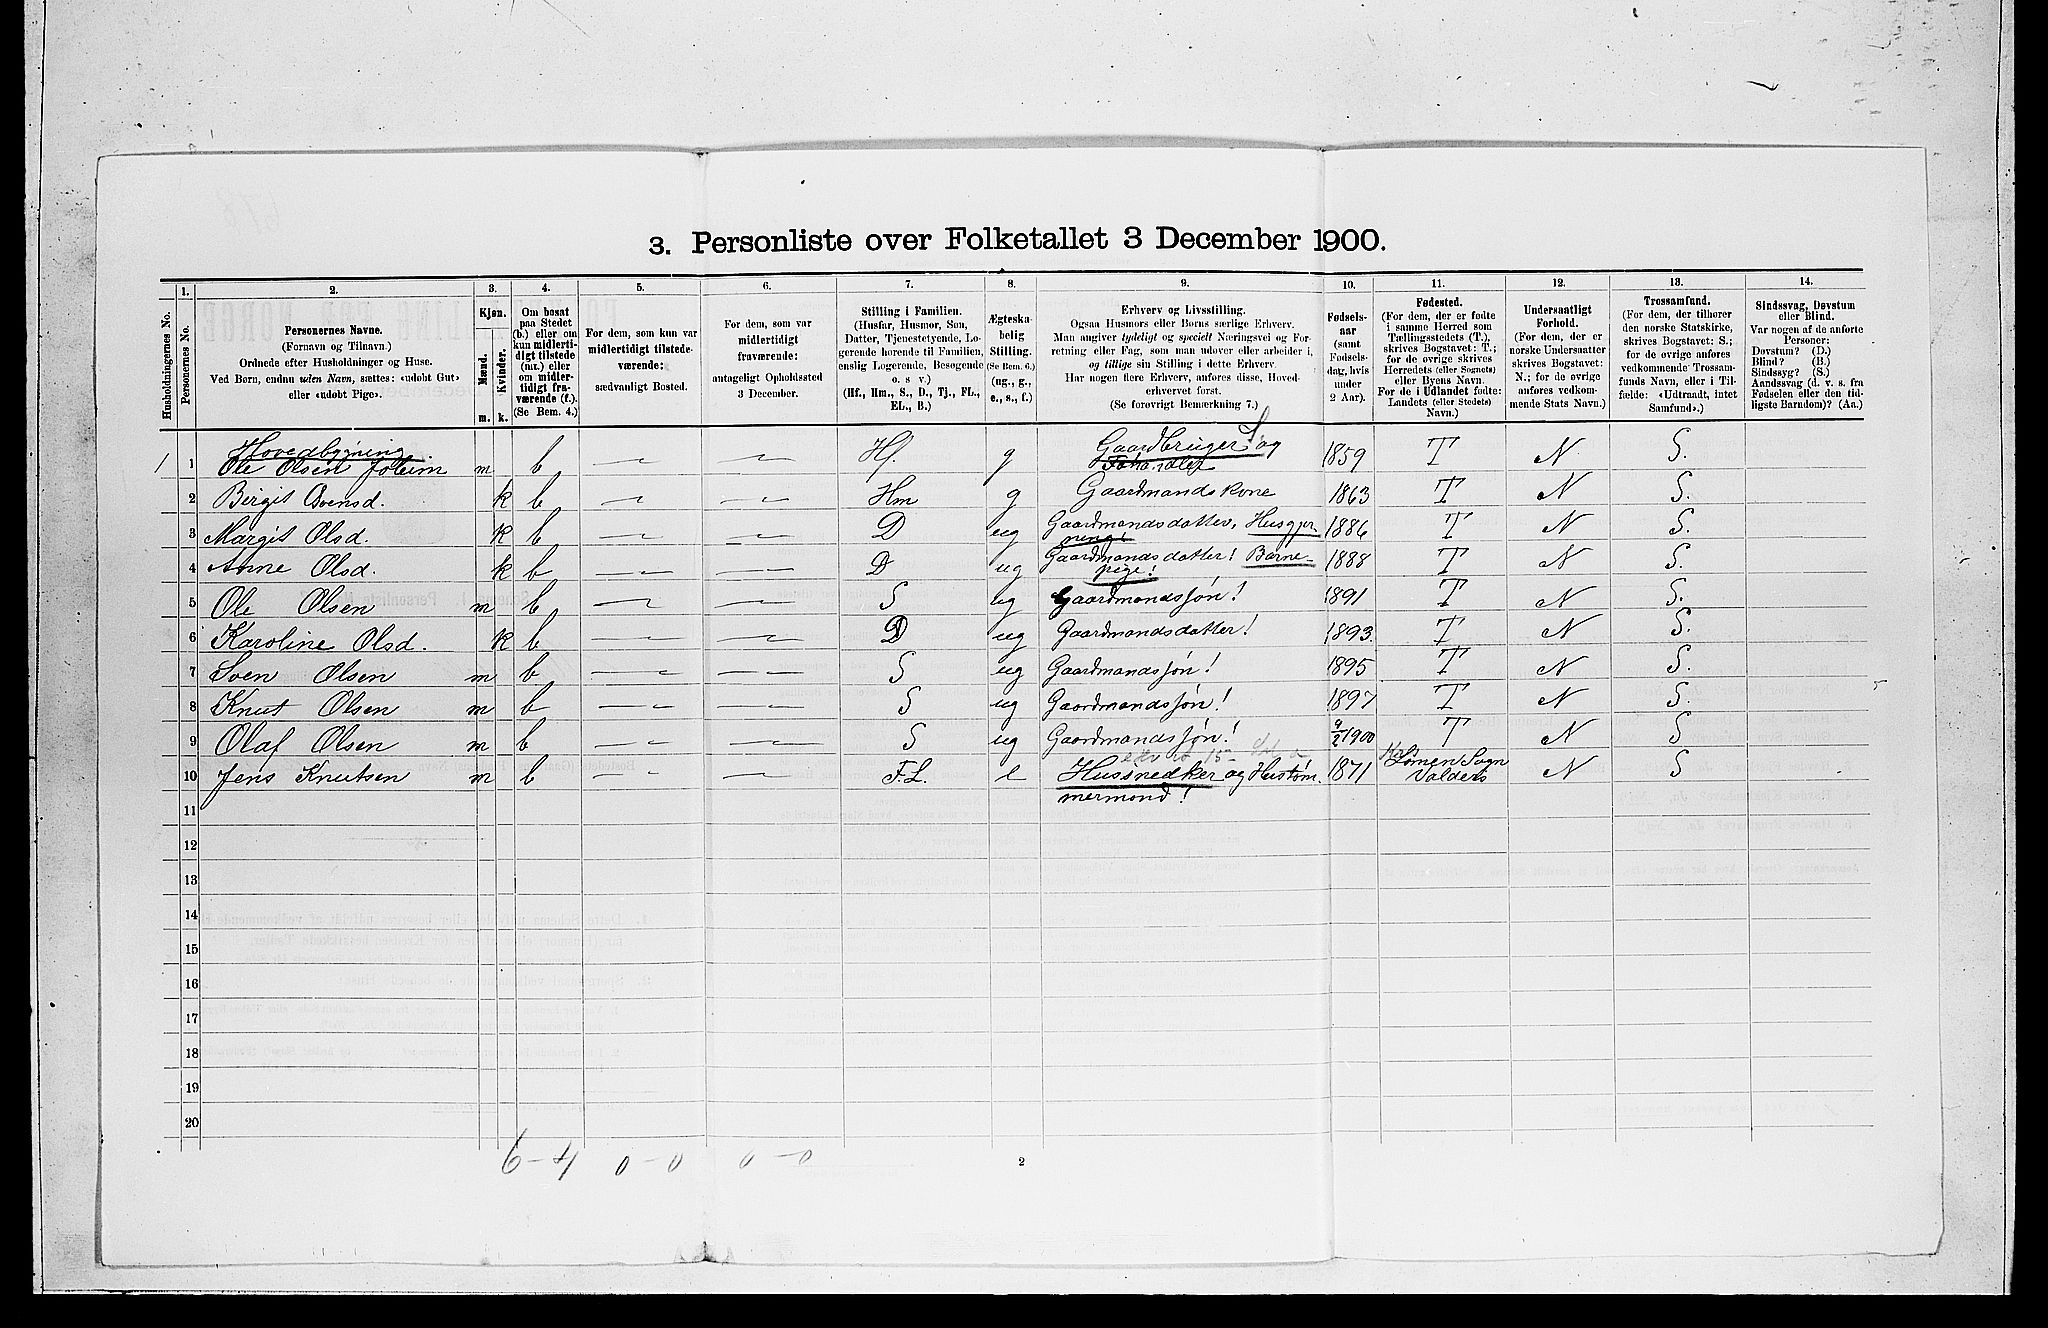 3. Personliste over Folketallet 3 December 1900.
Husholdningernes No.
1.
Personernes No.
2.
Personernes Navne.
(Fornavn og Tilnavn.)
Ordnede efter Husholdninger og Huse.
Ved Børn, endnu uden Navn, sættes: «udøbt Gut»
eller «udøbt Pige».
3.
Kjøn.
Mænd.
Kvinder.
m. k.
4.
Om bosat
paa Stedet
(b.) eller om
kun midlerti-
digt tilstede
(mt.) eller
om midler-
tidigt fra-
værende (f.).
(Se Bem. 4.)
5.
For dem, som kun var
midlertidigt tilstede-
værende:
sædvanligt Bosted.
6.
For dem, som var
midlertidigt
fraværende:
antageligt Opholdssted
3 December.
7.
Stilling i Familien.
(Husfar, Husmor, Søn,
Datter, Tjenestetyende, Lo-
gerende hørende til Familien,
enslig Logerende, Besøgende
o. s v.)
(Hf., Hm., S., D., Tj., FL.,
EL., B.)
8.
Ægteska-
belig
Stilling.
(Se Bem. 6.)
(ug., g.,
e., s., f.)
9.
Erhverv og Livsstilling.
Ogsaa Husmors eller Børns særlige Erhverv.
Man angiver tydeligt og specielt Næringsvei og For-
retning eller Fag, som man udøver eller arbeider i,
og tillige sin Stilling i dette Erhverv.
Har nogen flere Erhverv, anføres disse, Hoved-
erhvervet først.
(Se forøvrigt Bemærkning 7.)
10.
Fødsels-
aar
(samt
Fødsels-
dag, hvis
under
2 Aar).
11.
Fødested.
(For dem, der er fødte
i samme Herred som
Tællingsstedets (T.),
skrives Bogstavet: T.;
for de øvrige skrives
Herredets (eller Sognets)
eller Byens Navn.
For de i Udlandet fødte:
Landets (eller Stedets)
Navn.)
12.
Undersaatligt
Forhold.
(For dem, der er
norske Undersaatter
skrives Bogstavet:
N.; for de øvrige
anføres vedkom-
mende Stats Navn.)
13.
Trossamfund.
(For dem, der tilhører
den norske Statskirke,
skrives Bogstavet: S.;
for de øvrige anføres
vedkommende Trossam-
funds Navn, eller i Til-
fælde: «Udtraadt, intet
Samfund».)
14.
Sindssvag, Døvstum
eller Blind.
Var nogen af de anførte
Personer:
Døvstum? (D.)
Blind? (B.)
Sindssyg? (S.)
Aandssvag (d. v. s. fra
Fødselen eller den tid-
ligste Barndom)? (Aa.)
Hovedbygning
1 1 Ole Olsen Joteim m b Hf. g Gaardbruger og 1859 T N. S.
2 Birgit Svensd. k b Hm g Gaardmandskone 1863 T N S.
3 Margit Olsd. k b D ug Gaardmandsdatter, Husgjer- 1886 T N S.
ning!
4 Anne Olsd. k b D ug Gaardmandsdatter! Barne- 1888 T N S.
pige!
5 Ole Olsen m b S ug Gaardmandssøn! 1891 T N S.
6 Karoline Olsd. k b D ug Gaardmandsdatter! 1893. T N S.
7 Sven Olsen m b S ug Gaardmandssøn! 1895 T N S.
8 Knut Olsen m b S ug Gaardmandssøn! 1897 T N S.
9 Olaf Olsen m b S ug Gaardmandssøn! 9/2 1900 T N S
10 Jens Knutsen m b F.L. e Hussnedker og Hustøm- 1871 Lomen Sogn Valders N S
mermand!
11
12
13
14
15
16
17
18
19
20
6-4 0-0 0-0
2